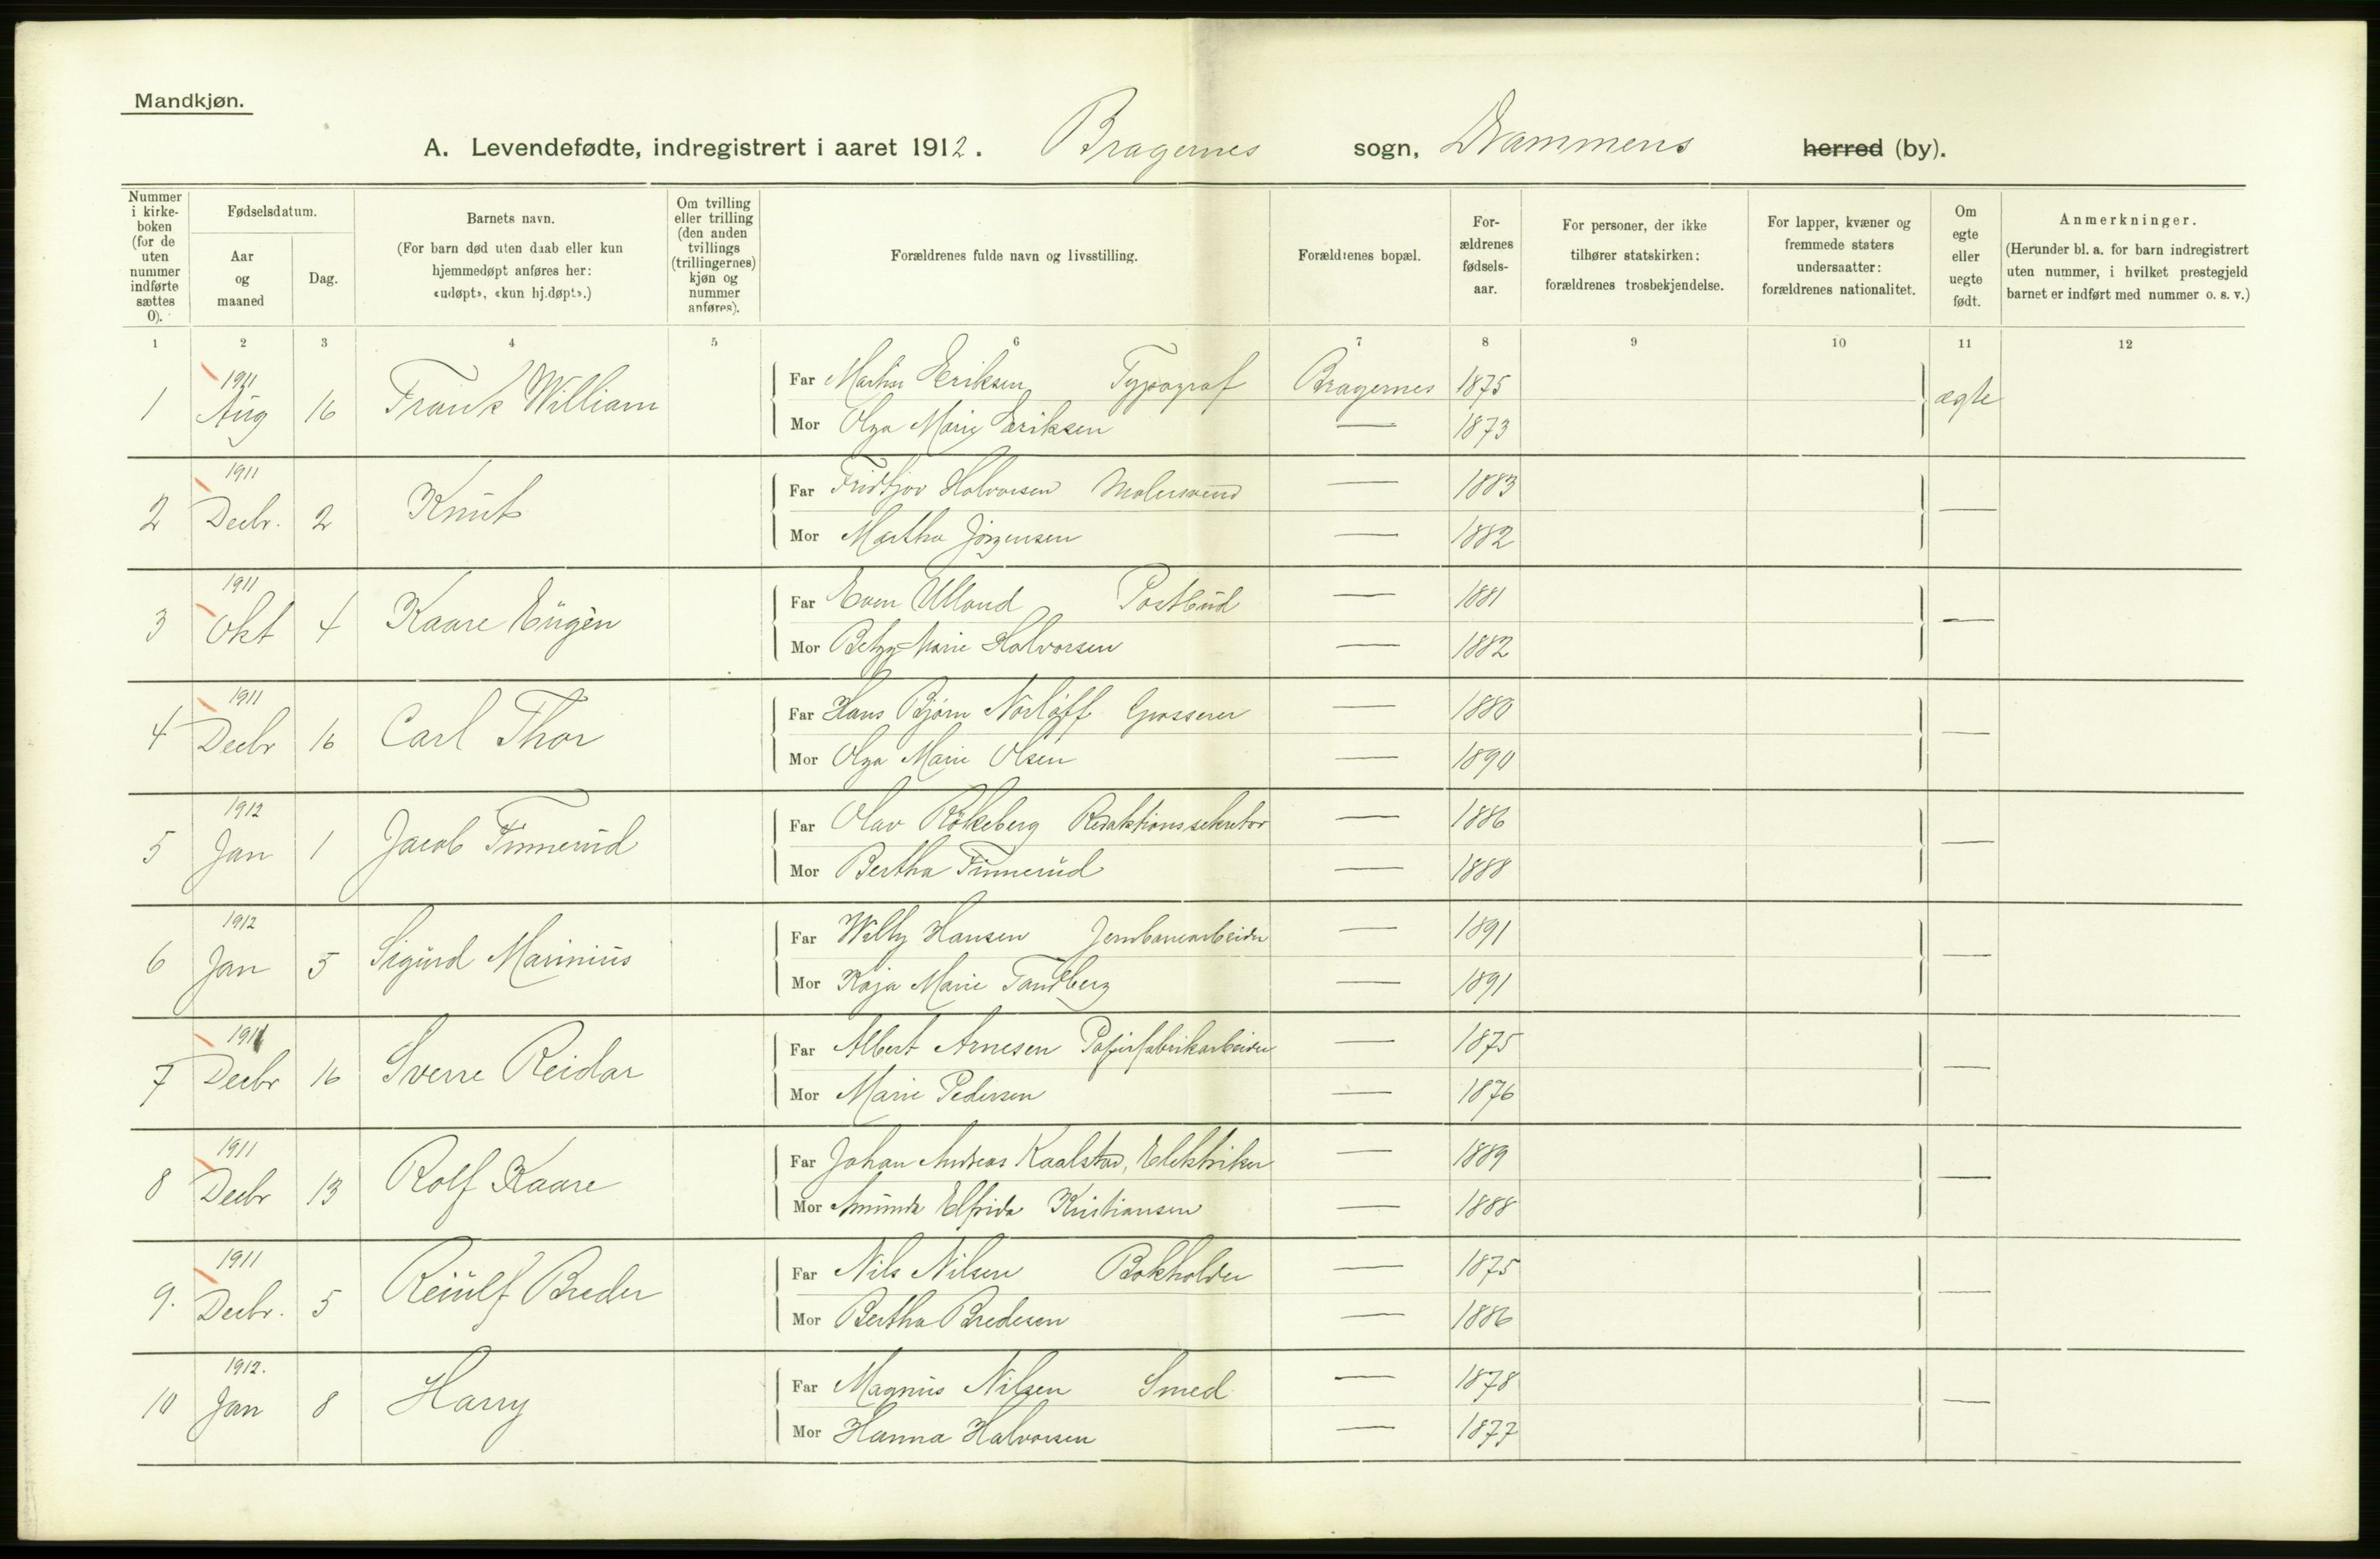 Mandkjøn.
A. Levendefødte, indregistrert i aaret 1912. Bragernes sogn, Drammens herred (by).
Nummer i kirke-boken (for de uten nummer indførte sættes 0).
Fødselsdatum.
Aar og maaned
Dag.
Barnets navn.
(For barn død uten daab eller kun hjemmedøpt anføres her: «udøpt», «kun hj.døpt».)
Om tvilling eller trilling (den anden tvillings (trillingernes) kjøn og nummer anføres).
Forældrenes fulde navn og livsstilling.
Forældrenes bopæl.
For-ældrenes fødsels-aar.
For personer, der ikke tilhører statskirken: forældrenes trosbekjendelse.
For lapper, kvæner og fremmede staters undersaatter: forældrenes nationalitet.
Om egte eller uegte født.
Anmerkninger.
(Herunder bl. a. for barn indregistrert uten nummer, i hvilket prestegjeld barnet er indført med nummer o. s. v.)
1 2 3 4 5 6 7 8 9 10 11 12
1 1911 Aug 16 Frank William Far Martin Eriksen Typograf Bragernes 1875 ægte
Mor Olga Marie Eriksen — 1873
2 1911 Decbr. 2 Knut Far Fridtjov Halvorsen Malersvend — 1883 —
Mor Martha Jörgensen — 1882
3 1911 Okt 4 Kaare Eugèn Far Even Ulland Postbud — 1881 —
Mor Betzy Marie Halvorsen — 1882
4 1911 Decbr 16 Carl Thor Far Hans Bjørn Norløff Grosserer — 1880 —
Mor Olga Marie Olsen — 1890
5 1912 Jan 1 Jacob Finnerud Far Olav Rökeberg Redaktionssekretær — 1886 —
Mor Bertha Finnerud — 1888
6 1912 Jan 5 Sigurd Marinius Far Willy Hansen Jernbanearbeider — 1891 —
Mor Kaja Marie Tandberg — 1891
7 1911 Decbr 16 Sverre Reidar Far Albert Arnesen Papirfabrikarbeider — 1875 —
Mor Marie Pedersen — 1876
8 1911 Decbr 13 Rolf Kaare Far Johan Andreas Kaalstad, Elektriker — 1889 —
Mor Amunda Elfrida Kristiansen — 1888
9. 1911 Decbr. 5 Reiulf Breder Far Nils Nilsen Bokholder — 1875 —
Mor Bertha Bredesen — 1886
10 1912. Jan 8 Harry Far Magnus Nilsen Smed — 1878 —
Mor Hanna Halvorsen — 1877